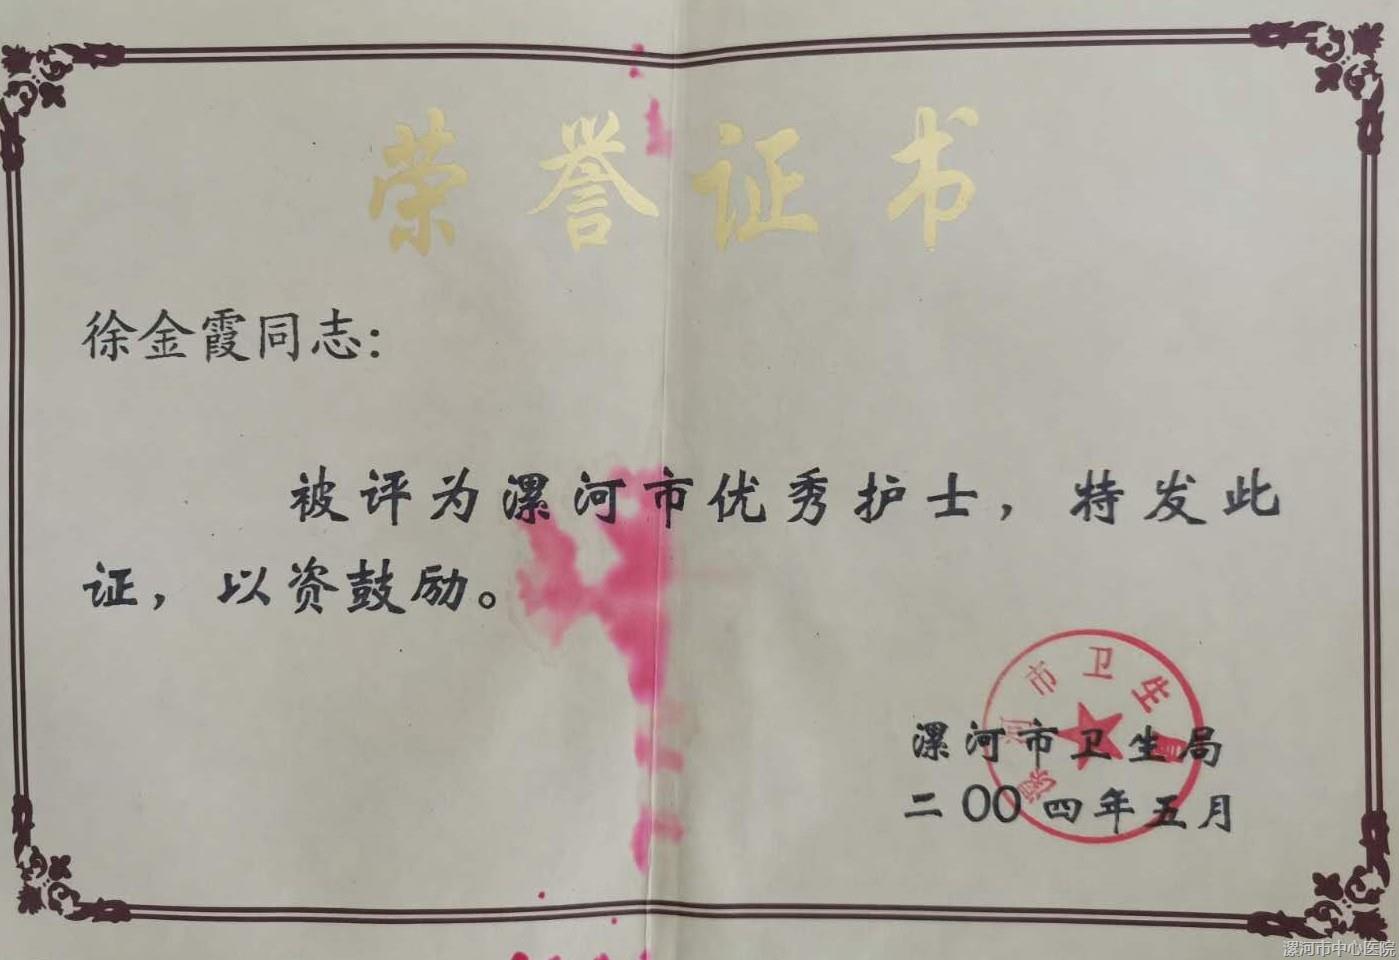 荣誉证书
徐金霞同志:
被评为漯河市优秀护士，特发此
证，以资鼓励。
漯河市卫生局
漯河市卫生局
二〇〇四年五月
漯河市中心医院